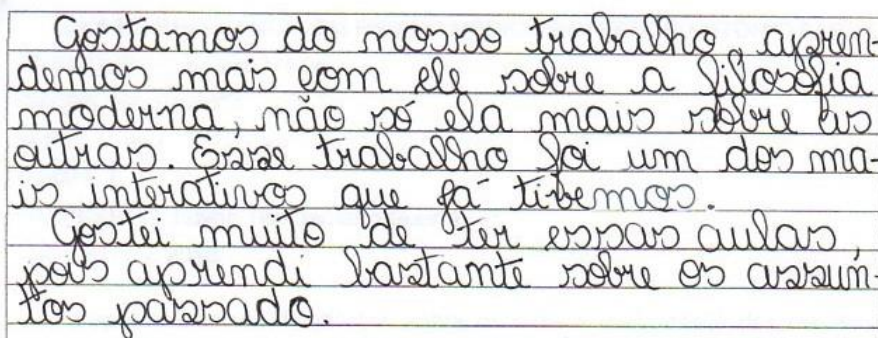 Gostamos do nosso trabalho, apren-
demos mais com ele sobre a filosofia
moderna, não só ela mais sobre as
outras. Esse trabalho foi um dos ma-
is interativos que já tibemos.
Gostei muito de ter essas aulas,
pois aprendi bastante sobre os assun-
tos passado.